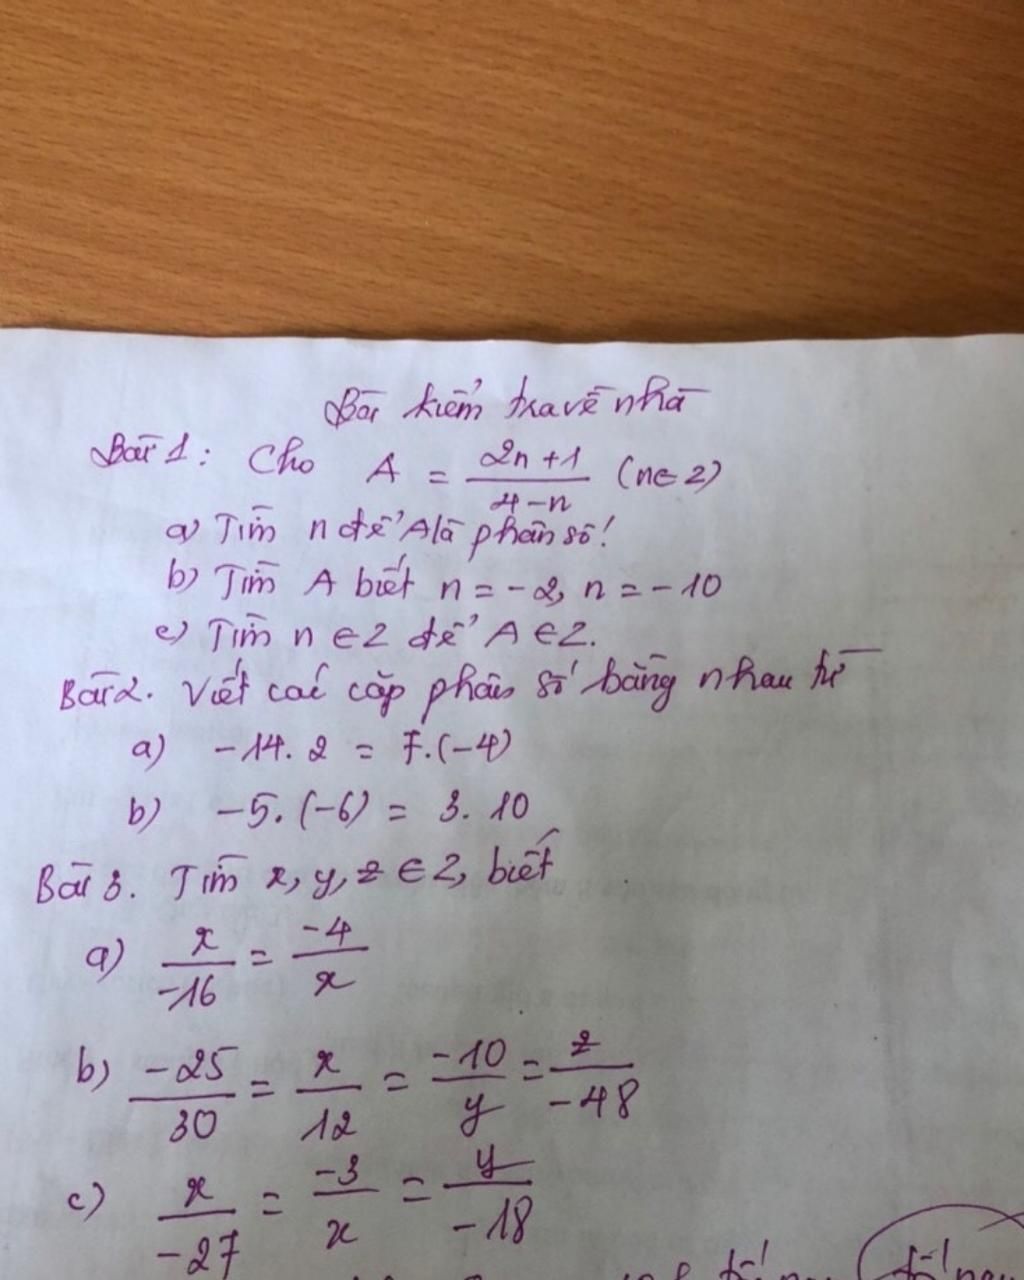 Bài kiểm tra về nhà
Bài 1: Cho A = \frac{2n+1}{4-n} (n ∈ Z)
a) Tìm n để A là phân số!
b) Tìm A biết n = -2, n = -10
c) Tìm n ∈ Z để A ∈ Z.
Bài 2. Viết các cặp phân số bằng nhau từ
a) -14. 2 = 7.(-4)
b) -5. (-6) = 3. 10
Bài 3. Tìm x, y, z ∈ Z, biết
a) \frac{x}{-16} = \frac{-4}{x}
b) \frac{-25}{30} = \frac{x}{12} = \frac{-10}{y} = \frac{z}{-48}
c) \frac{x}{-27} = \frac{-3}{x} = \frac{y}{-18}